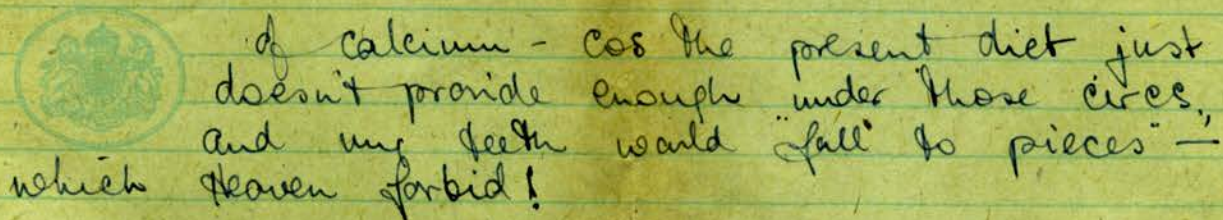 of calcium - cos the present diet just
doesn't provide enough under those circs.,
and my teeth would "fall to pieces" -
which Heaven forbid!